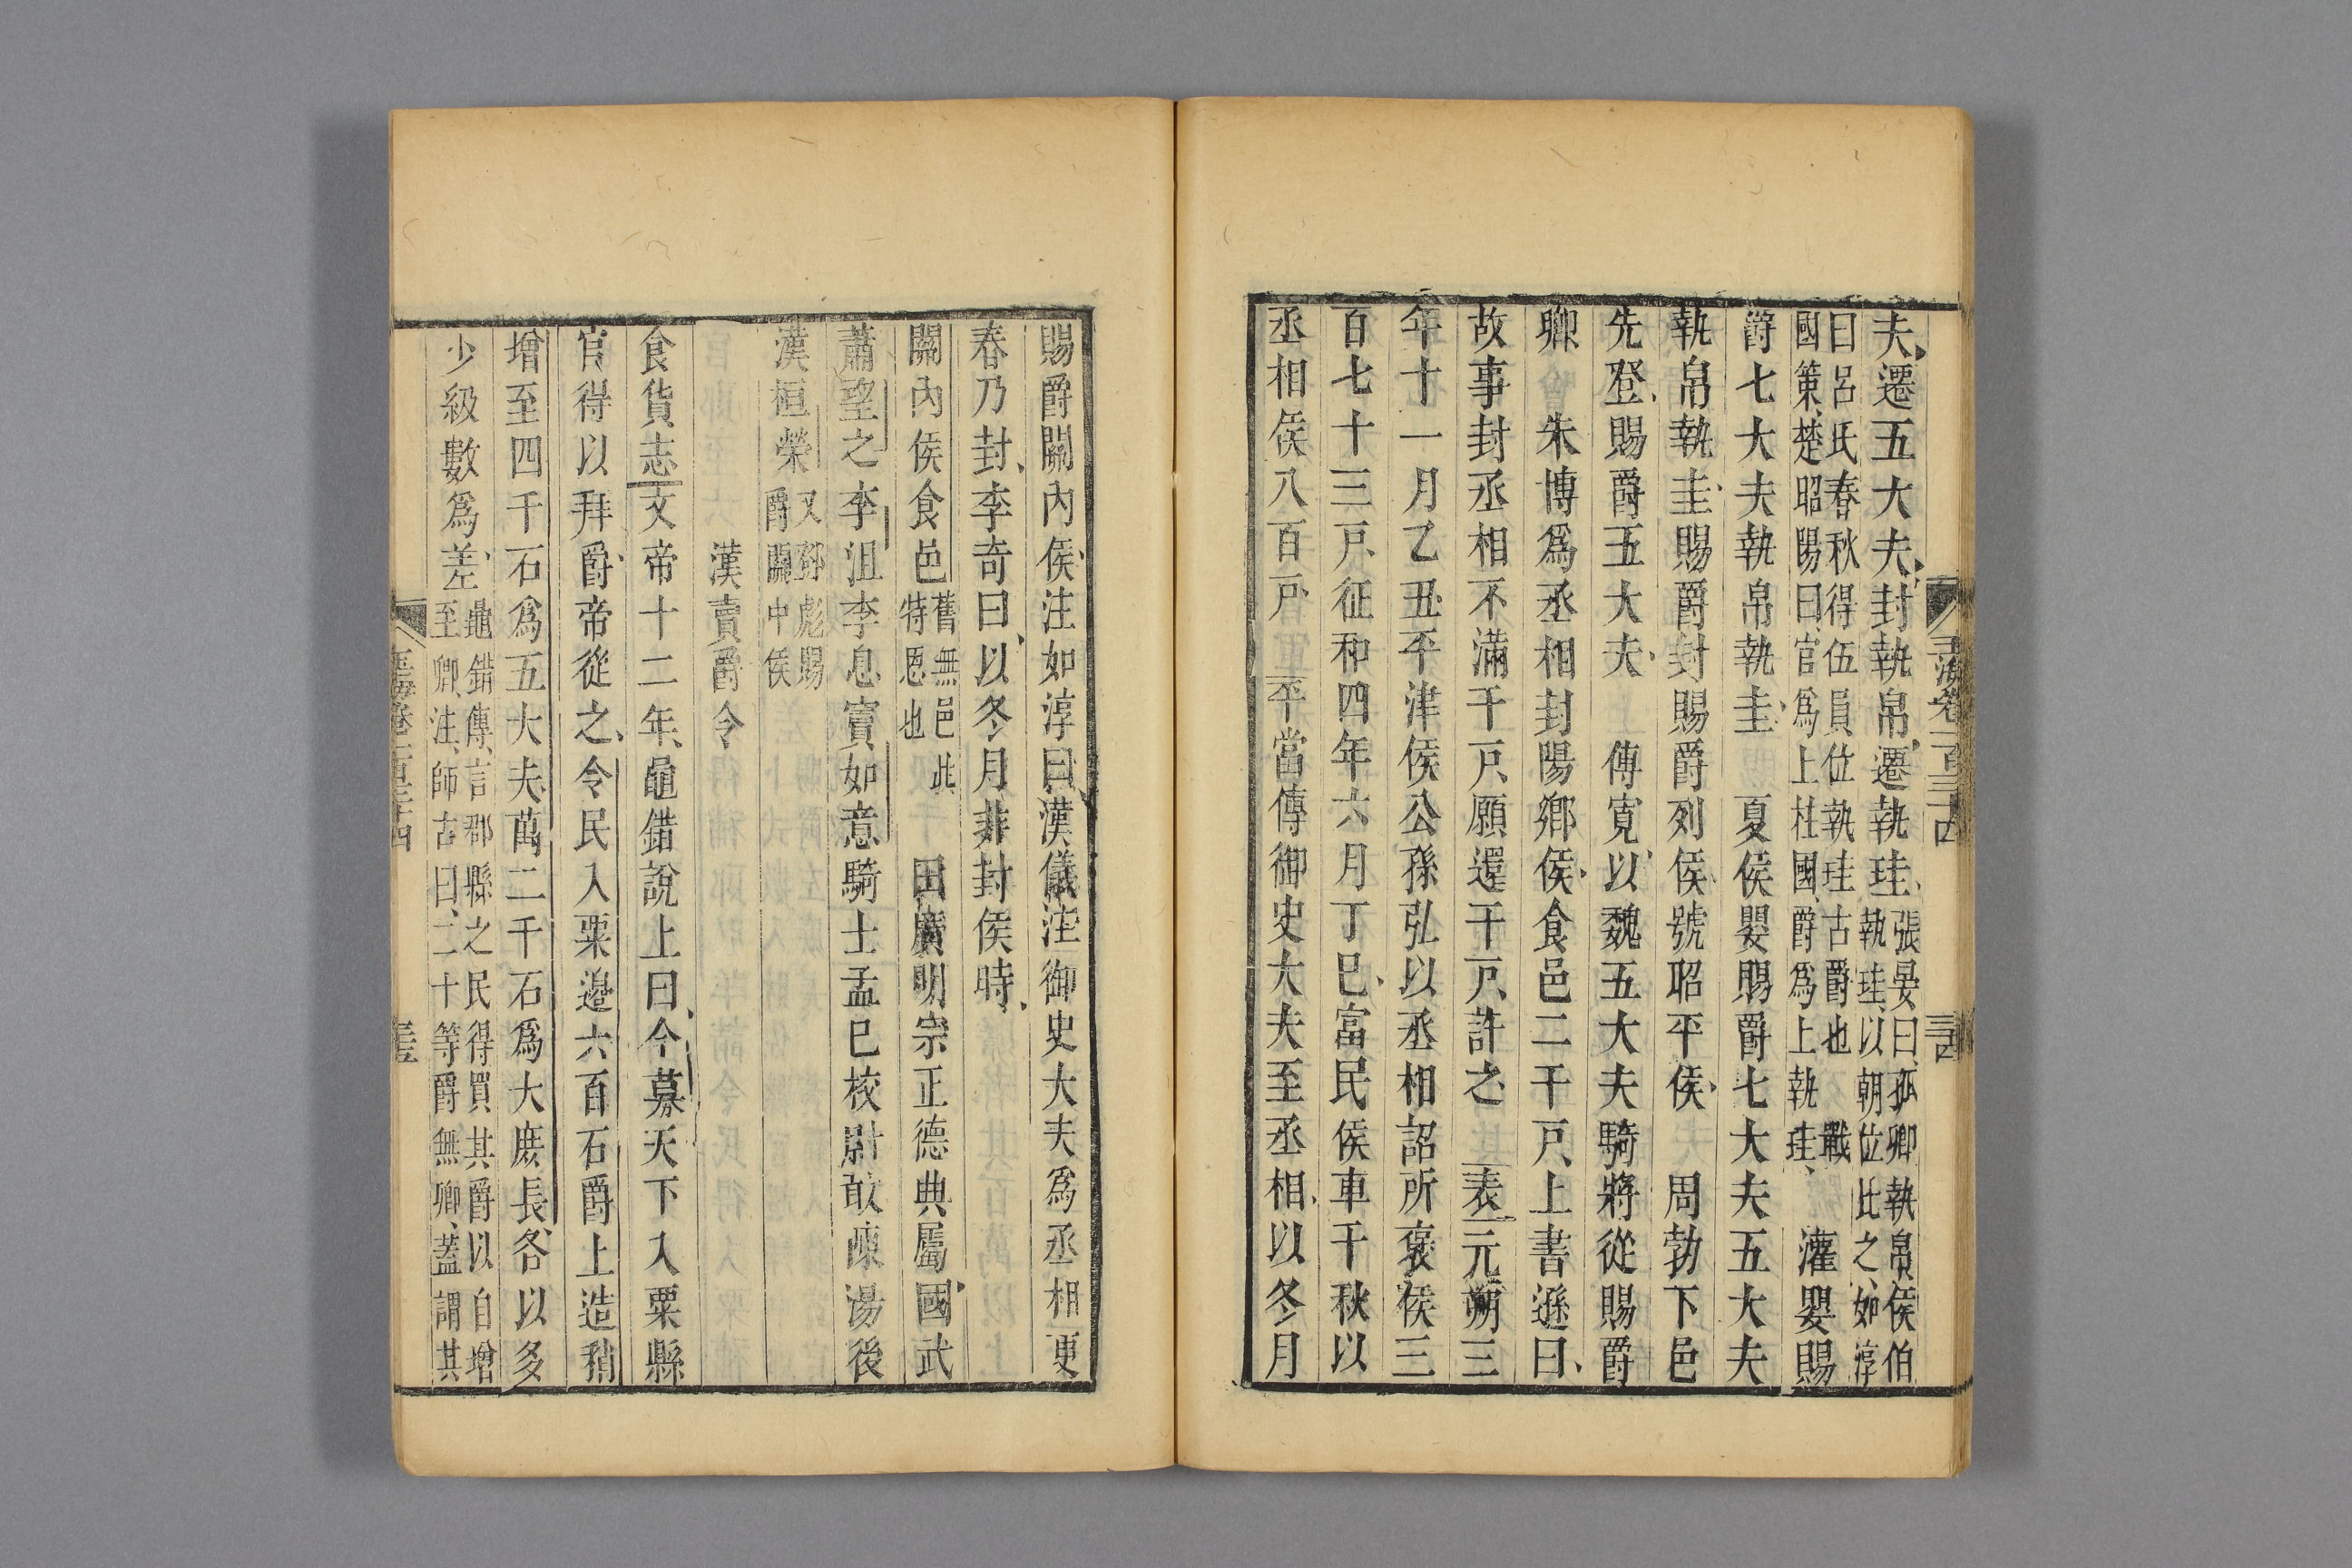 夫遷五大夫封執帛遷執珪張晏曰孤卿執帛侯伯執珪以朝位此之如淳
曰呂氏春秋得伍員位執珪古爵也戰國策楚昭陽曰官爲上柱國爵爲上執珪灌嬰賜
爵七大夫執帛執圭夏侯嬰賜爵七大夫五大夫
執帛執圭賜爵封賜爵列侯號昭平侯周勃下邑
先登賜爵五大夫傅寬以魏五大夫騎將從賜爵
卿朱博爲丞相封陽鄉侯食邑二千戸上書遜曰
故事封丞相不滿千戸願還千戸許之表元朔三
年十一月乙丑平津侯公孫弘以丞相詔所褒侯三
百七十三戸征和四年六月丁巳富民侯車千秋以
丞相侯八百戸平當傳御史大夫至丞相以冬月
玉海卷一百三十四
賜爵關內侯注如淳曰漢儀注御史大夫爲丞相更
春乃封李奇曰以冬月非封侯時
關內侯食邑舊無邑此特恩也田廣明宗正德典屬國武
蕭望之李沮李息竇如意騎士孟已校尉敢疎湯後
漢桓榮又鄧彪賜爵關中侯
漢賣爵令
食貨志文帝十二年鼂錯說上曰今募天下入粟縣
官得以拜爵帝從之令民入粟邊六百石爵上造稍
增至四千石爲五大夫萬二千石爲大庶長各以多
少級數爲差鼂錯傳言郡縣之民得買其爵以自增至卿注師古曰二十等爵無卿蓋謂其
玉海卷一百三十四